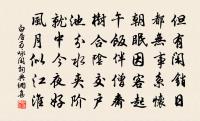 但有閑銷日
都無事繫懷
朝眠因客起
午飯伴僧齋
樹合陰交戶
池分水夾階
就中今夜好
風月似江淮
白居易詠閑詞典網書